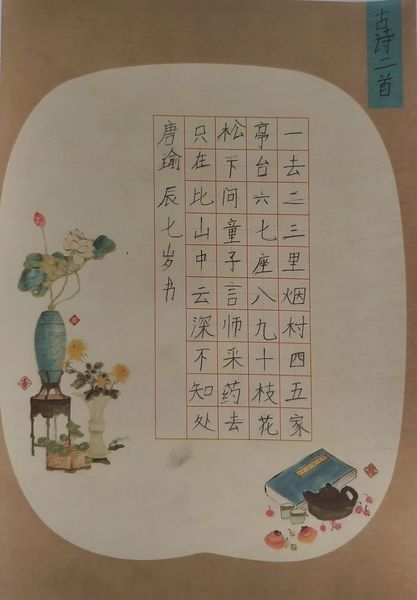 古诗二首
一去二三里烟村四五家
亭台六七座八九十枝花
松下问童子言师采药去
只在比山中云深不知处
唐瑜辰七岁书